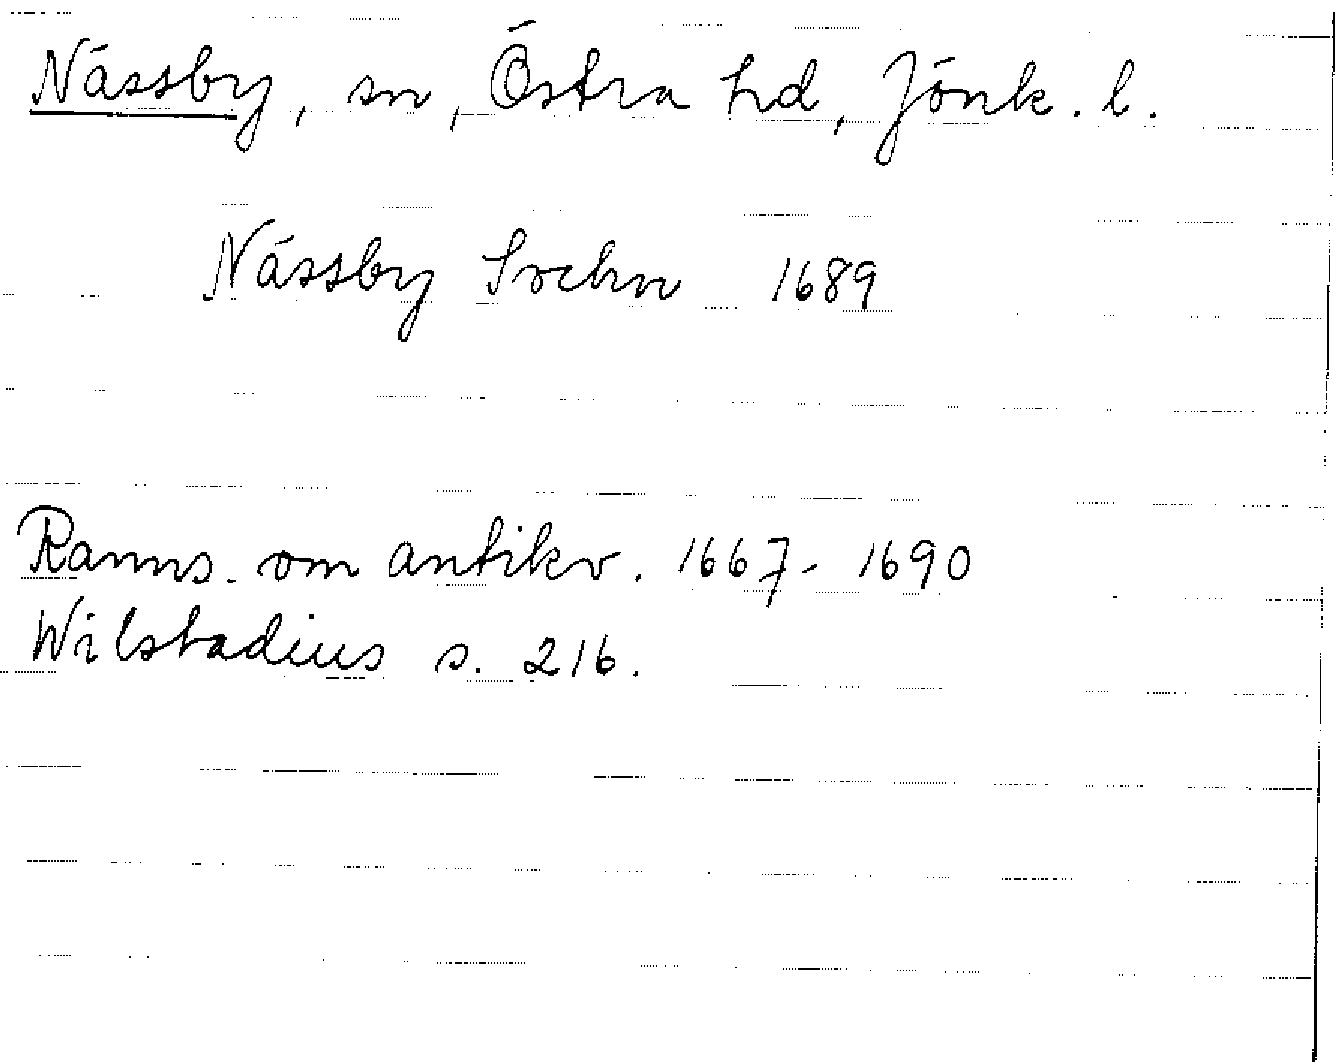 Nässby, sn, Östra hd, Jönk. l.
Nässby Sochn 1689
Ranns. om antikv. 1667- 1690
Wilstadius s. 216.